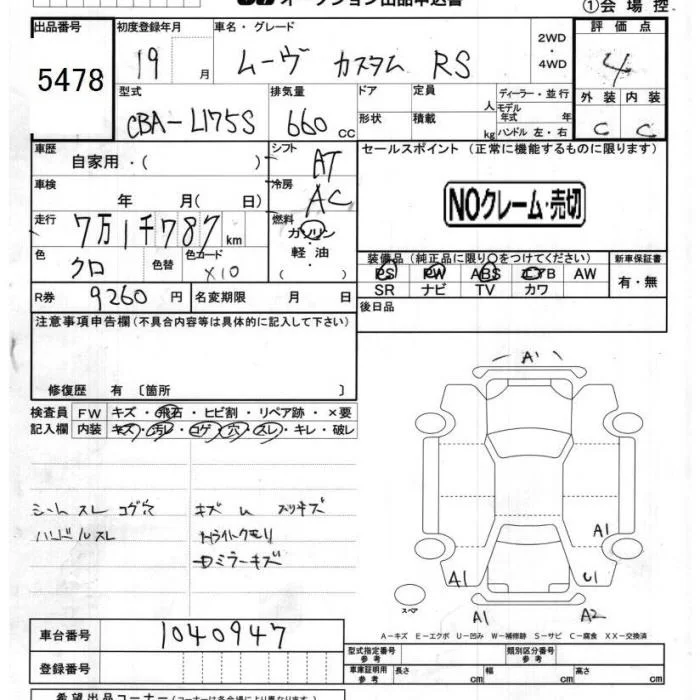 オークション出品申込書
①会場控
出品番号
5478
初度登録年月
19 月
車名・グレード
ムーヴ カスタム RS
2WD・4WD
評価点
4
型式
CBA-L175S
排気量
660 cc
ドア
定員 人
ディーラー・並行
モデル年式 年
形状
積載 kg
ハンドル 左・右
外装 内装
C C
車歴
自家用・( )
シフト
AT
セールスポイント (正常に機能するものに限ります)
NOクレーム・売切
車検
年 月( 日)
冷房
AC
走行
7万1千787km
燃料
ガソリン
軽油
( )
色
クロ
色替
色カード
X10
装備品(純正品に限り○をつけてください)
PS PW ABS エアB AW
SR ナビ TV カワ
新車保証書
有・無
R券 9260 円
名変期限 月 日
後日品
注意事項申告欄(不具合内容等は具体的に記入して下さい)
修復歴 有〔箇所 〕
検査員記入欄
FW キズ・飛石・ヒビ割・リペア跡・×要
内装 キズ・汚レ・コゲ・穴・スレ・キレ・破レ
シートスレ コゲ穴
ハンドルスレ
キズ ム スリキズ
Hライトクモリ
ロミラーキズ
A1
A1
A1
U1
A1
A2
スペア
A-キズ E-エクボ U-凹み W-補修跡 S-サビ C-腐食 XX-交換済
車台番号 1040947
登録番号
型式指定番号 参考
類別区分番号 参考
車庫証明用 参考 長さ cm 幅 cm 高さ cm
希望出品コーナー